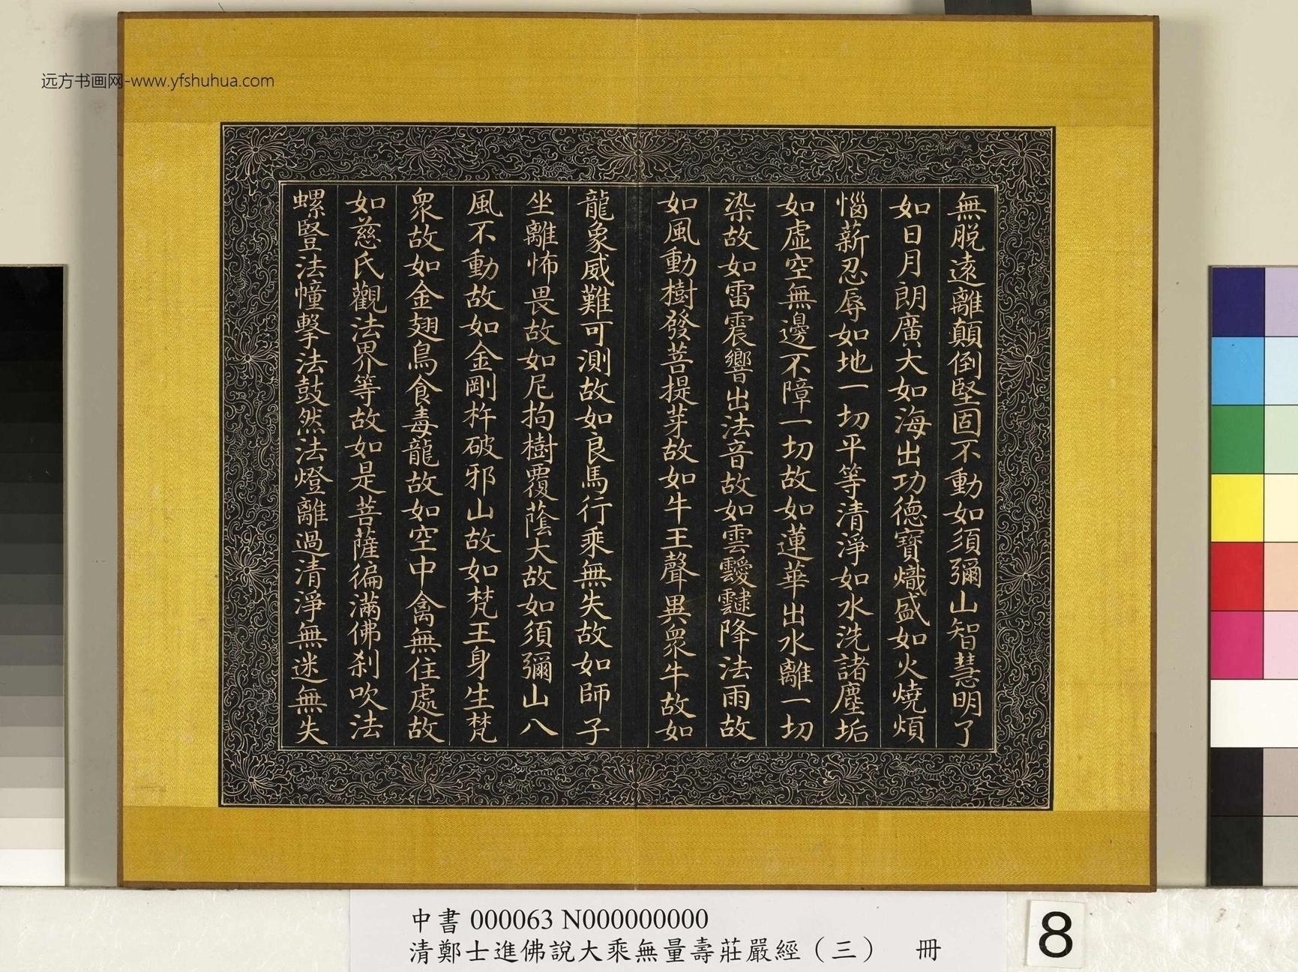 远方书画网-www.yfshuhua.com
無脫遠離顛倒堅固不動如須彌山智慧明了
如日月朗廣大如海出功德寶熾盛如火燒煩
惱薪忍辱如地一切平等清淨如水洗諸塵垢
如虛空無邊不障一切故如蓮華出水離一切
染故如雷震響出法音故如雲靉靆降法雨故
如風動樹發菩提芽故如牛王聲異衆牛故如
龍象威難可測故如良馬行乘無失故如師子
坐離怖畏故如尼拘樹覆蔭大故如須彌山八
風不動故如金剛杵破邪山故如梵王身生梵
衆故如金翅鳥食毒龍故如空中禽無住處故
如慈氏觀法界等故如是菩薩徧滿佛刹吹法
螺豎法幢擊法鼓然法燈離過清淨無迷無失
中書 000063 N000000000
清鄭士進佛說大乘無量壽莊嚴經（三） 冊
8